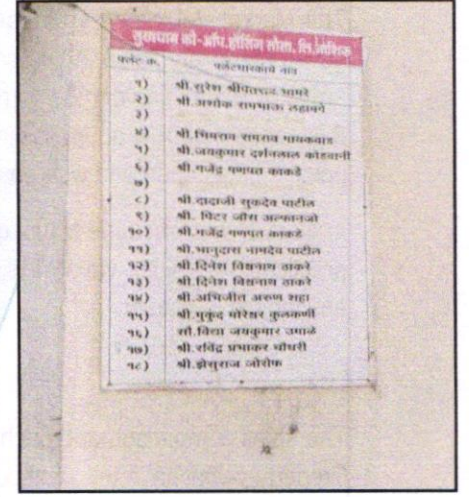 सुखधाम को-ऑप.हौसिंग सोसा. लि.नाशिक
फ्लॅट क्र. फ्लॅटधारकाचे नाव
१) श्री.सुरेश श्रीपतराव भामरे
२) श्री.अशोक रामभाऊ लहामगे
३)
४) श्री.भिमराव रामराव गायकवाड
५) श्री.जयकुमार दर्शनलाल कोडवानी
६) श्री.गजेंद्र गणपत काकडे
७)
८) श्री.दादाजी सुकदेव पाटील
९) श्री. पिटर जोस अल्फानजो
१०) श्री.गजेंद्र गणपत काकडे
११) श्री.भानुदास नामदेव पाटील
१२) श्री.दिनेश विश्वनाथ ठाकरे
१३) श्री.दिनेश विश्वनाथ ठाकरे
१४) श्री.अभिजीत अरुण शहा
१५) श्री.मुकुंद मोरेश्वर कुलकर्णी
१६) सौ.विद्या जयकुमार उगले
१७) श्री.रविंद्र प्रभाकर चौधरी
१८) श्री.झेसुराज जोसेफ